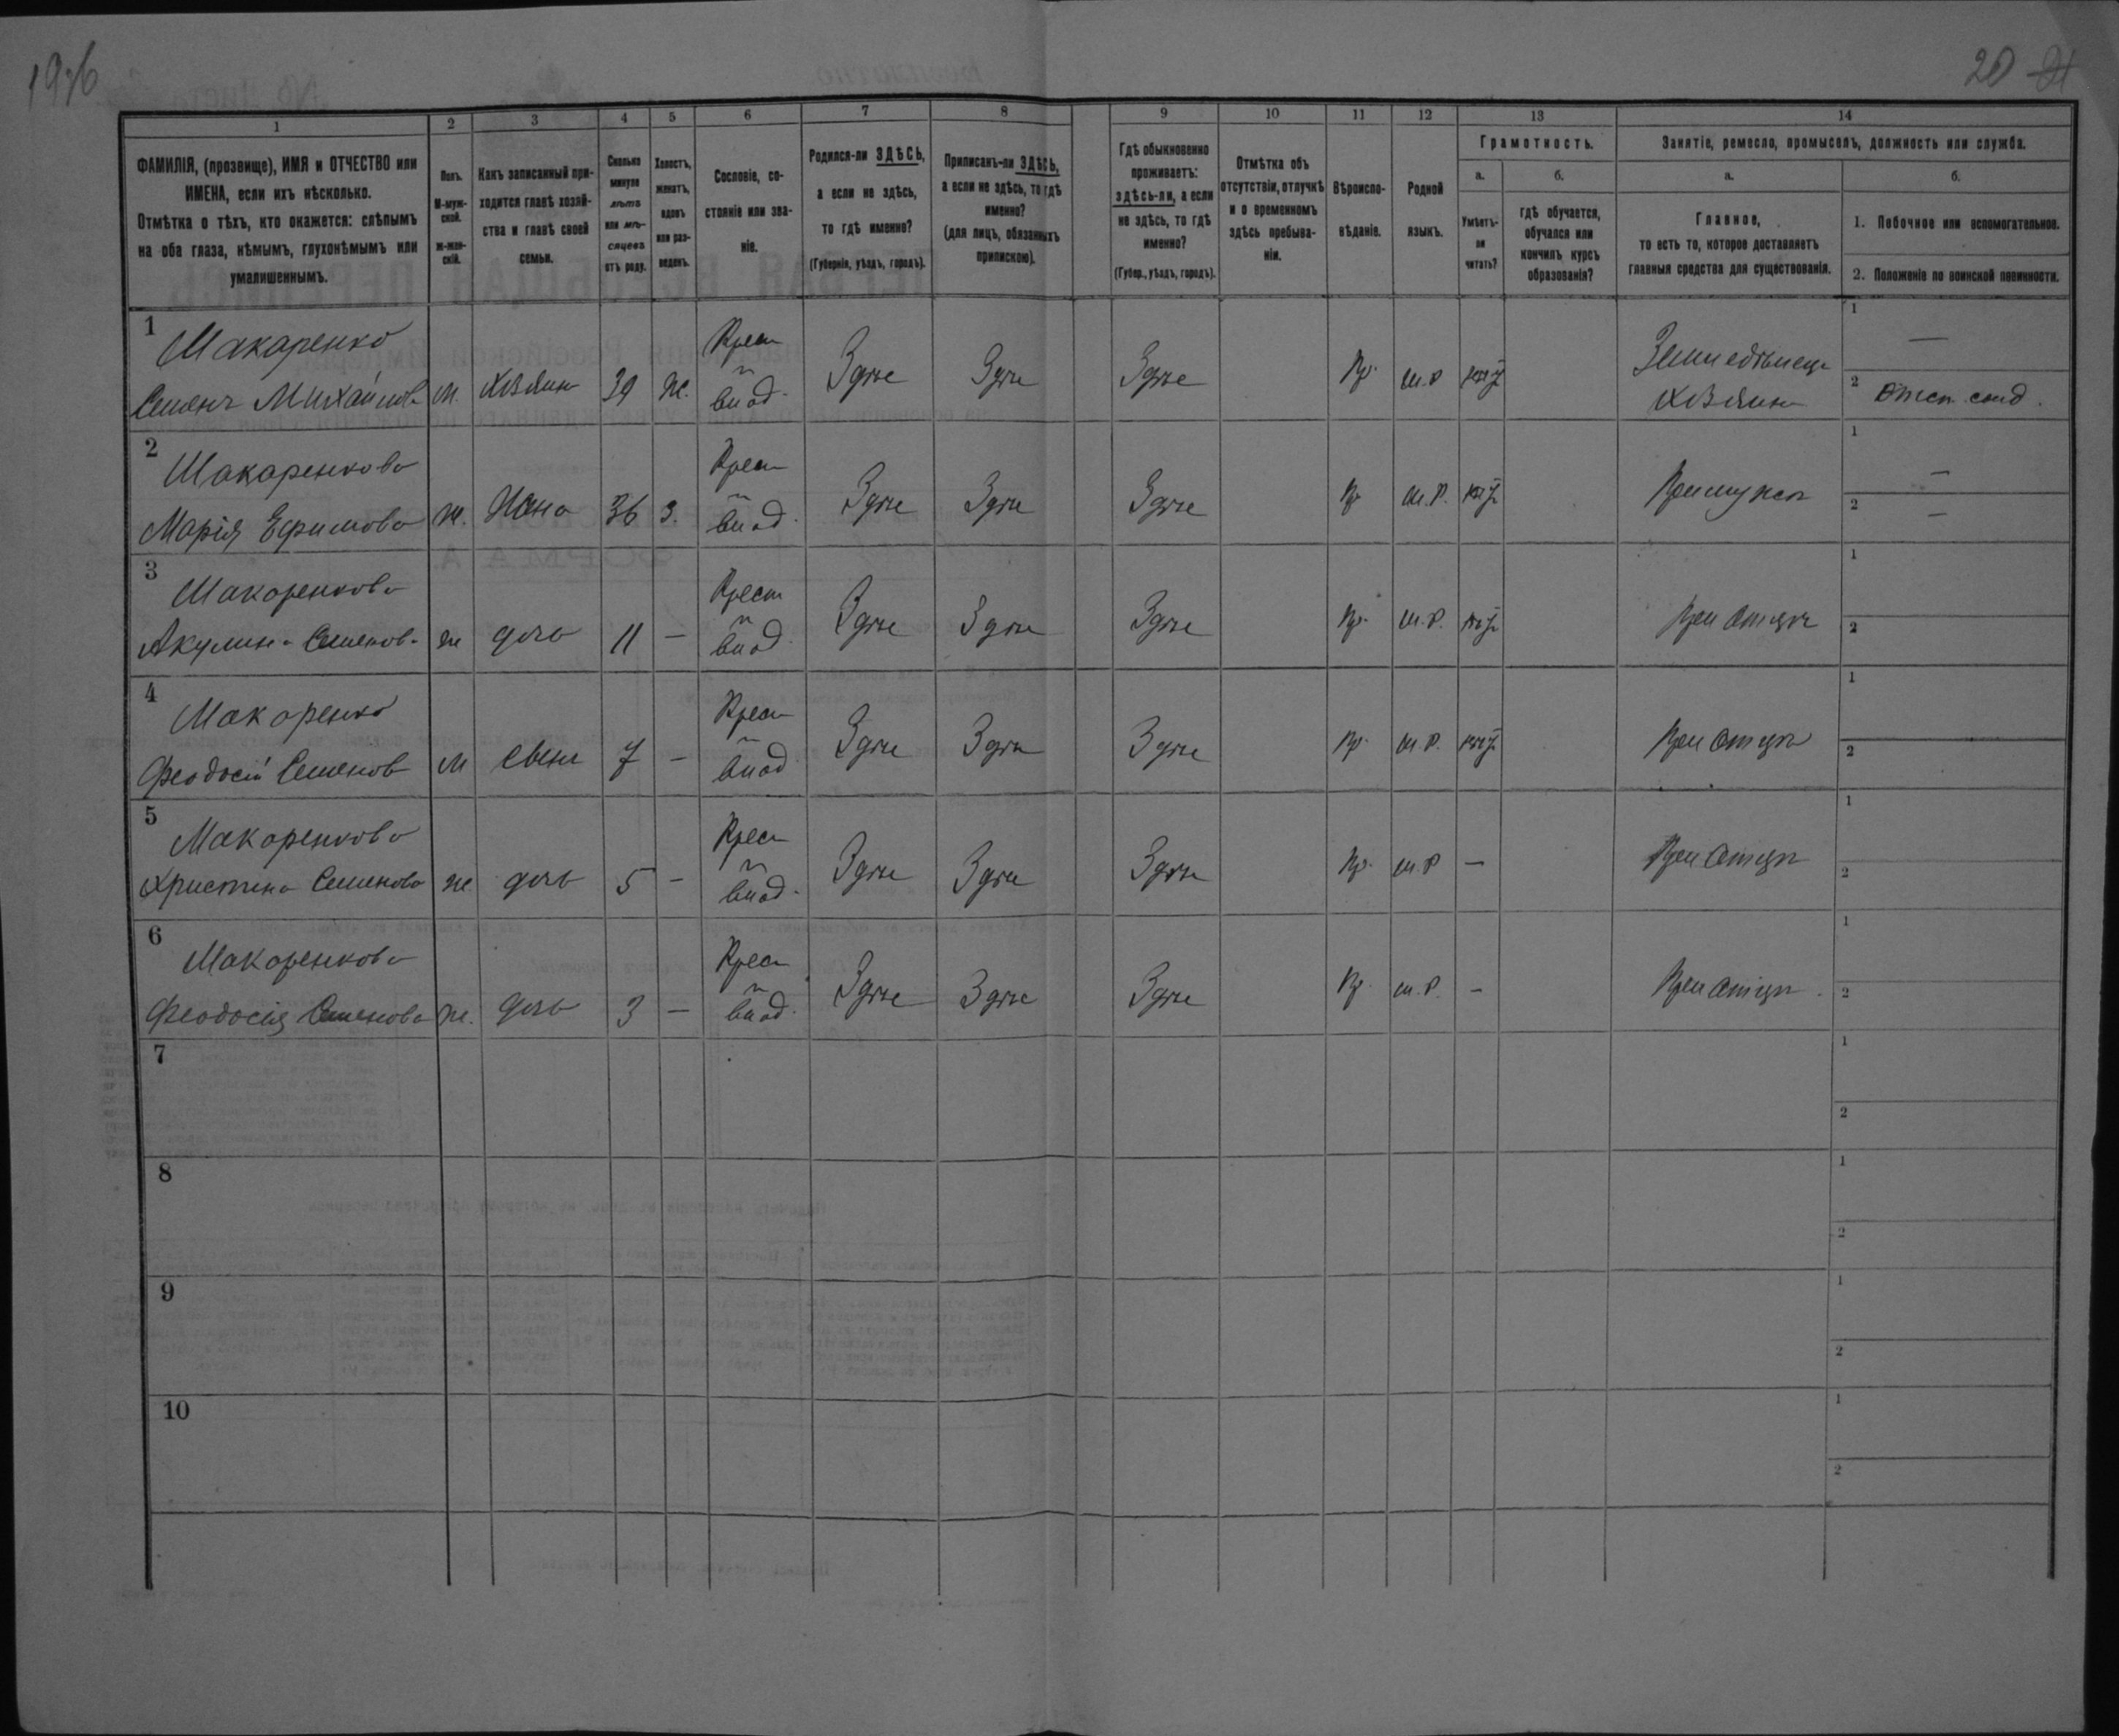 1976
20 21
1
2
3
4
5
6
7
8
9
10
11
12
13
14
ФАМИЛІЯ, (прозвище), ИМЯ и ОТЧЕСТВО или
ИМЕНА, если ихъ нѣсколько.
Отмѣтка о тѣхъ, кто окажется: слѣпымъ
на оба глаза, нѣмымъ, глухонѣмымъ или
умалишеннымъ.
Полъ.
М-муж-
ской.
ж-жен-
скій.
Какъ записанный при-
ходится главѣ хозяй-
ства и главѣ своей
семьи.
Сколько
минуло
лѣтъ
или мѣ-
сяцевъ
отъ роду.
Холостъ,
женатъ,
вдовъ
или раз-
веденъ.
Сословіе, со-
стояніе или зва-
ніе.
Родился-ли ЗДѢСЬ,
а если не здѣсь,
то гдѣ именно?
(Губернія, уѣздъ, городъ).
Приписанъ-ли ЗДѢСЬ,
а если не здѣсь, то гдѣ
именно?
(для лицъ, обязанныхъ
припискою).
Гдѣ обыкновенно
проживаетъ:
здѣсь-ли, а если
не здѣсь, то гдѣ
именно?
(Губер., уѣздъ, городъ).
Отмѣтка объ
отсутствіи, отлучкѣ
и о временномъ
здѣсь пребыва-
ніи.
Вѣроиспо-
вѣданіе.
Родной
языкъ.
Грамотность.
а.
Умѣетъ-
ли
читать?
б.
гдѣ обучается,
обучался или
кончилъ курсъ
образованія?
Занятіе, ремесло, промыселъ, должность или служба.
а.
Главное,
то есть то, которое доставляетъ
главныя средства для существованія.
б.
1. Побочное или вспомогательное.
2. Положеніе по воинской повинности.
1
Макаренко Крест Земледѣлецъ 1 —
Семенъ Михайлов м. хозяинъ 39 ж. влад. Здѣсь Здѣсь Здѣсь Пр. м.р. нѣт хозяинъ 2
2
Макаренкова Крест 1 —
Марія Ефимова ж. Жена 36 з. влад. Здѣсь Здѣсь Здѣсь Пр м.р. нѣт При мужѣ 2 —
3
Макаренкова Крест 1
Акулина Семенов ж дочь 11 — влад. Здѣсь Здѣсь Здѣсь Пр. м.р. нѣт При отцѣ 2
4
Макаренко Крест 1
Феодосій Семенов м сынъ 7 — влад. Здѣсь Здѣсь Здѣсь Пр. м.р. нѣт При отцѣ 2
5
Макаренкова Крест 1
Христина Семенова ж дочь 5 — влад. Здѣсь Здѣсь Здѣсь Пр. м.р — При отцѣ 2
6
Макаренкова Крест 1
Феодосія Семенова ж. дочь 3 — влад. Здѣсь Здѣсь Здѣсь Пр. м.р. — При отцѣ 2
7
1
2
8
1
2
9
1
2
10
1
2